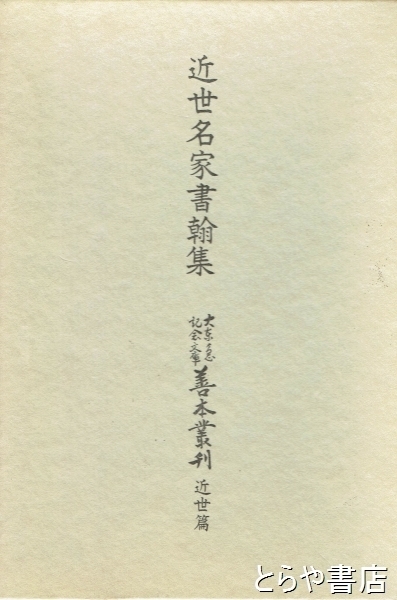 近世名家書翰集
大東急
記念文庫
善本叢刊
近世篇
とらや書店